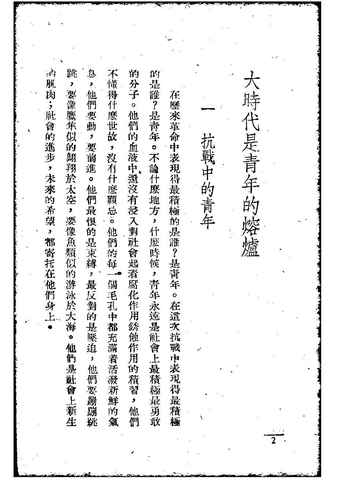 大時代是青年的熔爐
一　抗戰中的青年
在歷來革命中表現得最積極的是誰？是青年。在這次抗戰中表現得最積極
的是誰？是青年。不論什麼地方，什麼時候，青年永遠是社會上最積極最勇敢
的分子。他們的血液中還沒有浸入對社會起着腐化作用銹蝕作用的積習，他們
不懂得什麼世故，沒有什麼顧忌。他們的每一個毛孔中都充滿着活潑新鮮的氣
息，他們要動，要前進。他們最恨的是束縛，最反對的是壓迫，他們要蹦蹦跳
跳，要像鷹隼似的翱翔於太空，要像魚類似的游泳於大海。他們是社會上新生
的肌肉；社會的進步，未來的希望，都寄托在他們身上。
2